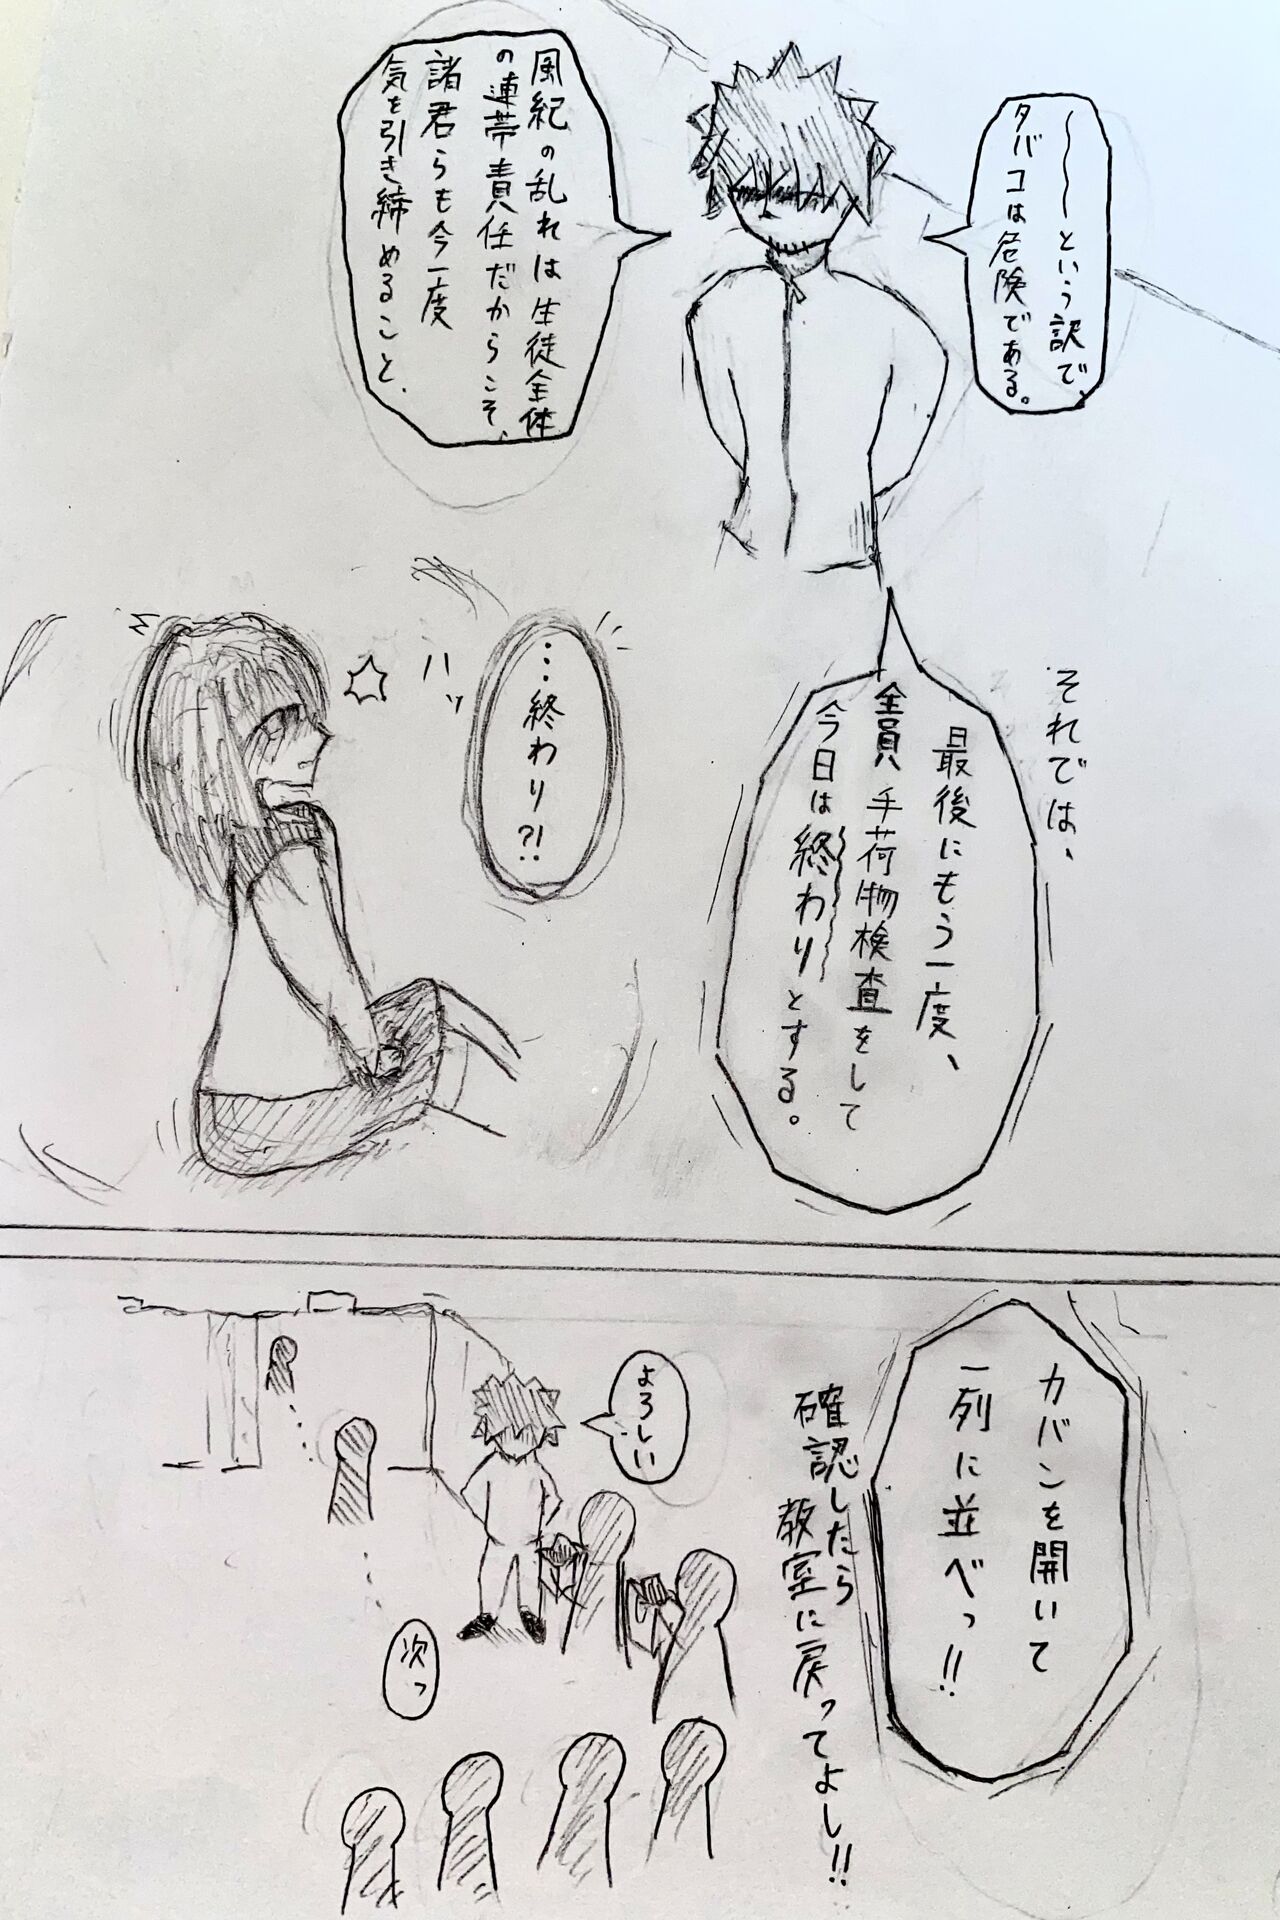 ～～～という訳で、
タバコは危険である。
風紀の乱れは生徒全体
の連帯責任だからこそ、
諸君らも今一度
気を引き締めること、
それでは、
最後にもう一度、
全員手荷物検査をして
今日は終わりとする。
…終わり?!
ハッ
カバンを開いて
一列に並べっ!!
確認したら
教室に戻ってよし!!
よろしい
次っ